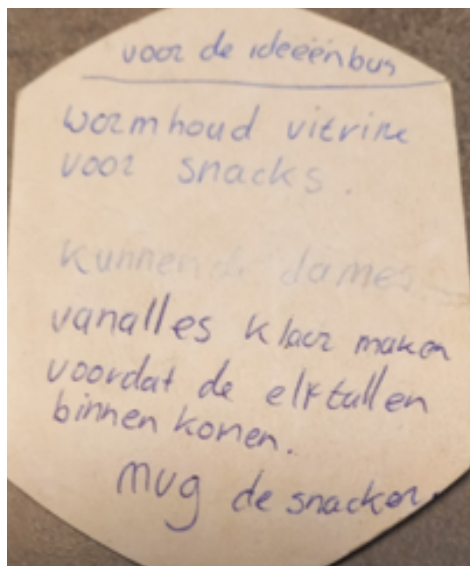 voor de ideeënbus
wormhoud vitrine
voor snacks.
kunnen de dames
vanalles klaar maken
voordat de elftallen
binnen komen.
mug de snacker.